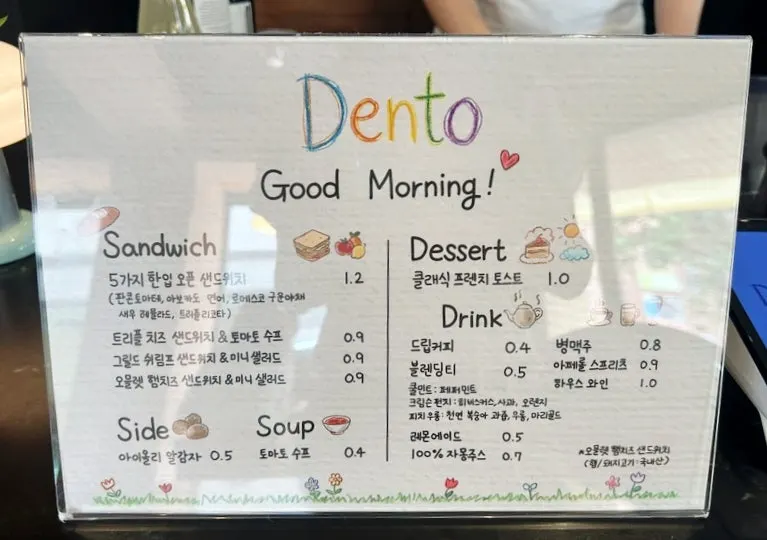 Dento
Good Morning!
Sandwich
5가지 한입 오픈 샌드위치 1.2
(판콘토마테, 아보카도 연어, 로메스코 구운야채
새우 레물라드, 트러플리코타)
트리플 치즈 샌드위치 & 토마토 수프 0.9
그릴드 쉬림프 샌드위치 & 미니 샐러드 0.9
오믈렛 햄치즈 샌드위치 & 미니 샐러드 0.9
Side
아이올리 알감자 0.5
Soup
토마토 수프 0.4
Dessert
클래식 프렌치 토스트 1.0
Drink
드립커피 0.4
블렌딩티 0.5
쿨민트 : 페퍼민트
크림슨 펀치 : 히비스커스, 사과, 오렌지
피치 우롱 : 천연 복숭아 과즙, 우롱, 마리골드
레몬에이드 0.5
100% 자몽주스 0.7
병맥주 0.8
아페롤 스프리츠 0.9
하우스 와인 1.0
*오믈렛 햄치즈 샌드위치
(햄/돼지고기 : 국내산)